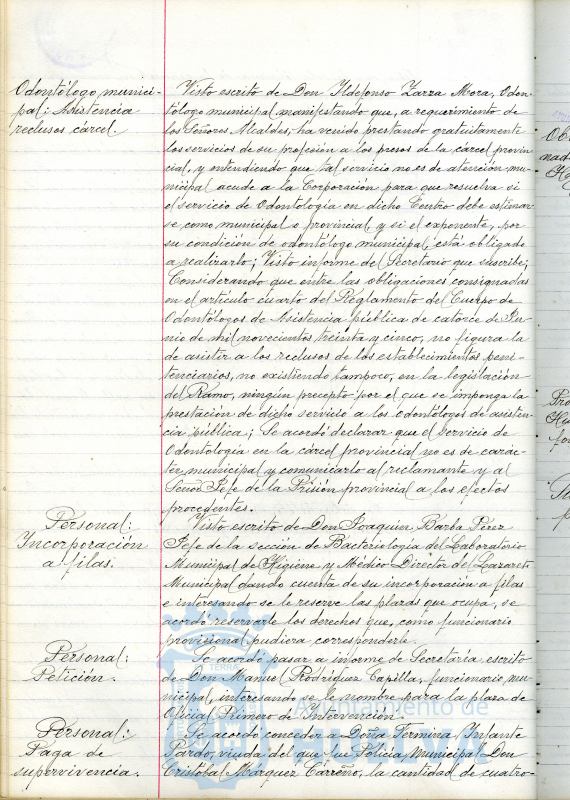 Odontólogo munici-
pal: Asistencia
reclusos cárcel.
Visto escrito de Don Ildefonso Zarza Mora, Odon-
tólogo municipal, manifestando que, a requerimiento de
los Señores Alcaldes, ha venido prestando gratuitamente
los servicios de su profesión a los presos de la cárcel provin-
cial, y entendiendo que tal servicio no es de atención mu-
nicipal acude a la Corporación para que resuelva si
el servicio de Odontología en dicho Centro debe estimar-
se como municipal o provincial, y si el exponente, por
su condición de odontólogo municipal, está obligado
a realizarlo; Visto informe del Secretario que suscribe;
Considerando que entre las obligaciones consignadas
en el artículo cuarto del Reglamento del Cuerpo de
Odontólogos de Asistencia pública de catorce de Ju-
nio de mil novecientos treinta y cinco, no figura la
de asistir a los reclusos de los establecimientos peni-
tenciarios, no existiendo tampoco, en la legislación
del Ramo, ningún precepto por el que se imponga la
prestación de dicho servicio a los Odontólogos de asisten-
cia pública; Se acordó declarar que el servicio de
Odontología en la cárcel provincial no es de carác-
ter municipal y comunicarlo al reclamante y al
Señor Jefe de la Prisión provincial a los efectos
procedentes.
Personal:
Incorporación
a filas.
Visto escrito de Don Joaquín Barba Pérez
Jefe de la sección de Bacteriología del Laboratorio
Municipal de Higiene y Médico Director del Lazareto
Municipal dando cuenta de su incorporación a filas
e interesando se le reserve las plazas que ocupa, se
acordó reservarle los derechos que, como funcionario
provisional pudiera corresponderle.
Personal:
Petición.
Se acordó pasar a informe de Secretaría escrito
de Don Manuel Rodríguez Capilla, funcionario mu-
nicipal, interesando se le nombre para la plaza de
Oficial Primero de Intervención.
Personal:
Paga de
supervivencia.
Se acordó conceder a Doña Fermina Infante
Pardo, viuda del que fue Policía Municipal Don
Cristóbal Márquez Carreño, la cantidad de cuatro-
Ayuntamiento de